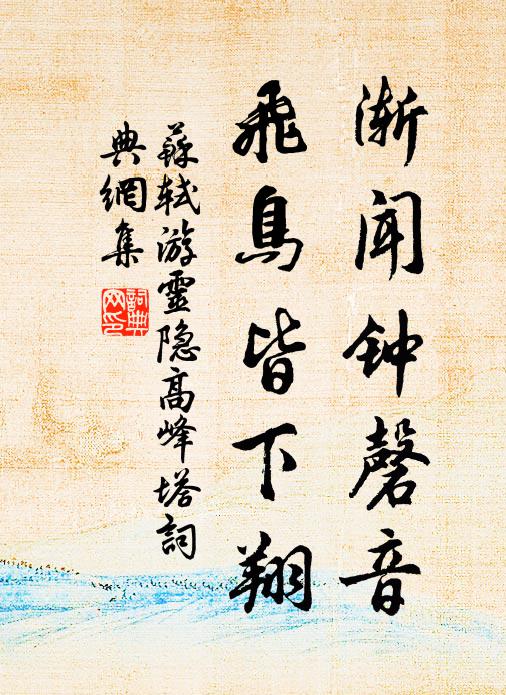 渐闻钟磬音
飛鳥皆下翔
蘇軾游靈隐高峰塔詞
典網集
詞典
网印